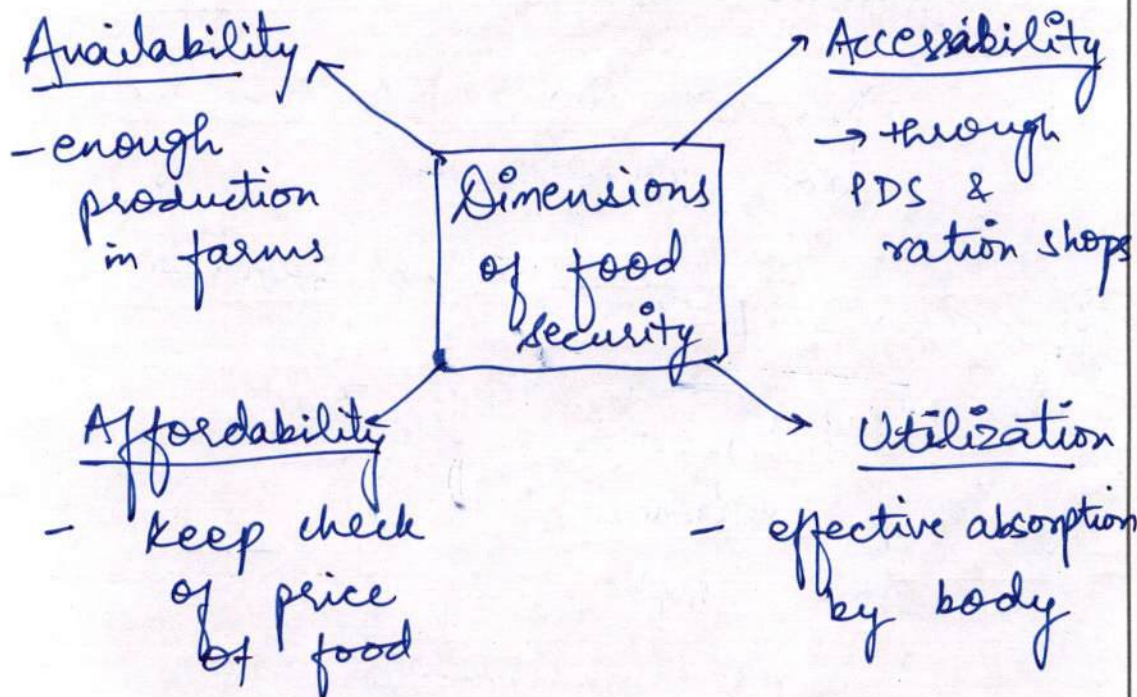 Availability
- enough
production
in farms
Dimensions
of food
security
Accessability
→ through
PDS &
ration shops
Affordability
- keep check
of price
of food
Utilization
- effective absorption
by body